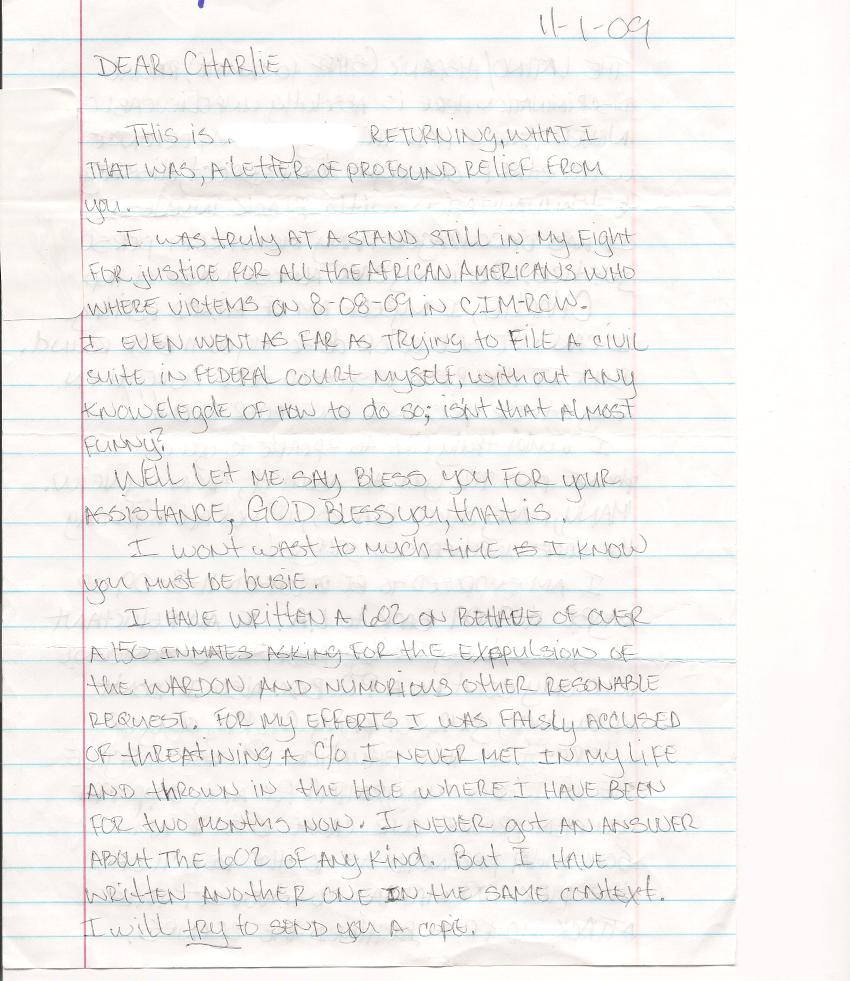 11-1-09
DEAR CHARLIE
THIS IS RETURNING, WHAT I
THAT WAS, A LETTER OF PROFOUND RELIEF FROM
you.
I WAS truly AT A STAND STILL IN My Fight
FOR justice FOR ALL the AFRICAN AMERICANS WHO
WHERE VICTEMS ON 8-08-09 in CIM-RCW.
I EVEN WENT AS FAR AS TRYING to FilE A civil
suite in FEDERAL COURT MYSELF, without ANY
KNOWELEGDE OF HOW to do so; isn't that ALMOST
FUNNY?
WELL LET ME SAY BLESS you FOR your
ASSISTANCE, GOD BLESS you, that is.
I WONT WAST to Much time I KNOW
you must BE busie.
I HAVE WRITTEN A 602 ON BEHAVE OF OVER
A 150 INMATES ASKING FOR the EXPPULSION OF
the WARDON AND NUMORIOUS other RESONABLE
REQUEST. FOR MY EFFORTS I WAS FALSLY ACCUSED
OF threATINING A C/O I NEVER MET IN MY LIFE
AND thROWN IN the HOLE WHERE I HAVE BEEN
FOR two MONTHS NOW. I NEVER got AN ANSWER
ABOUT THE 602 OF ANY KIND. But I HAVE
WRITTEN ANOTHER ONE IN the SAME CONTEXT.
I will try to SEND you A copie.